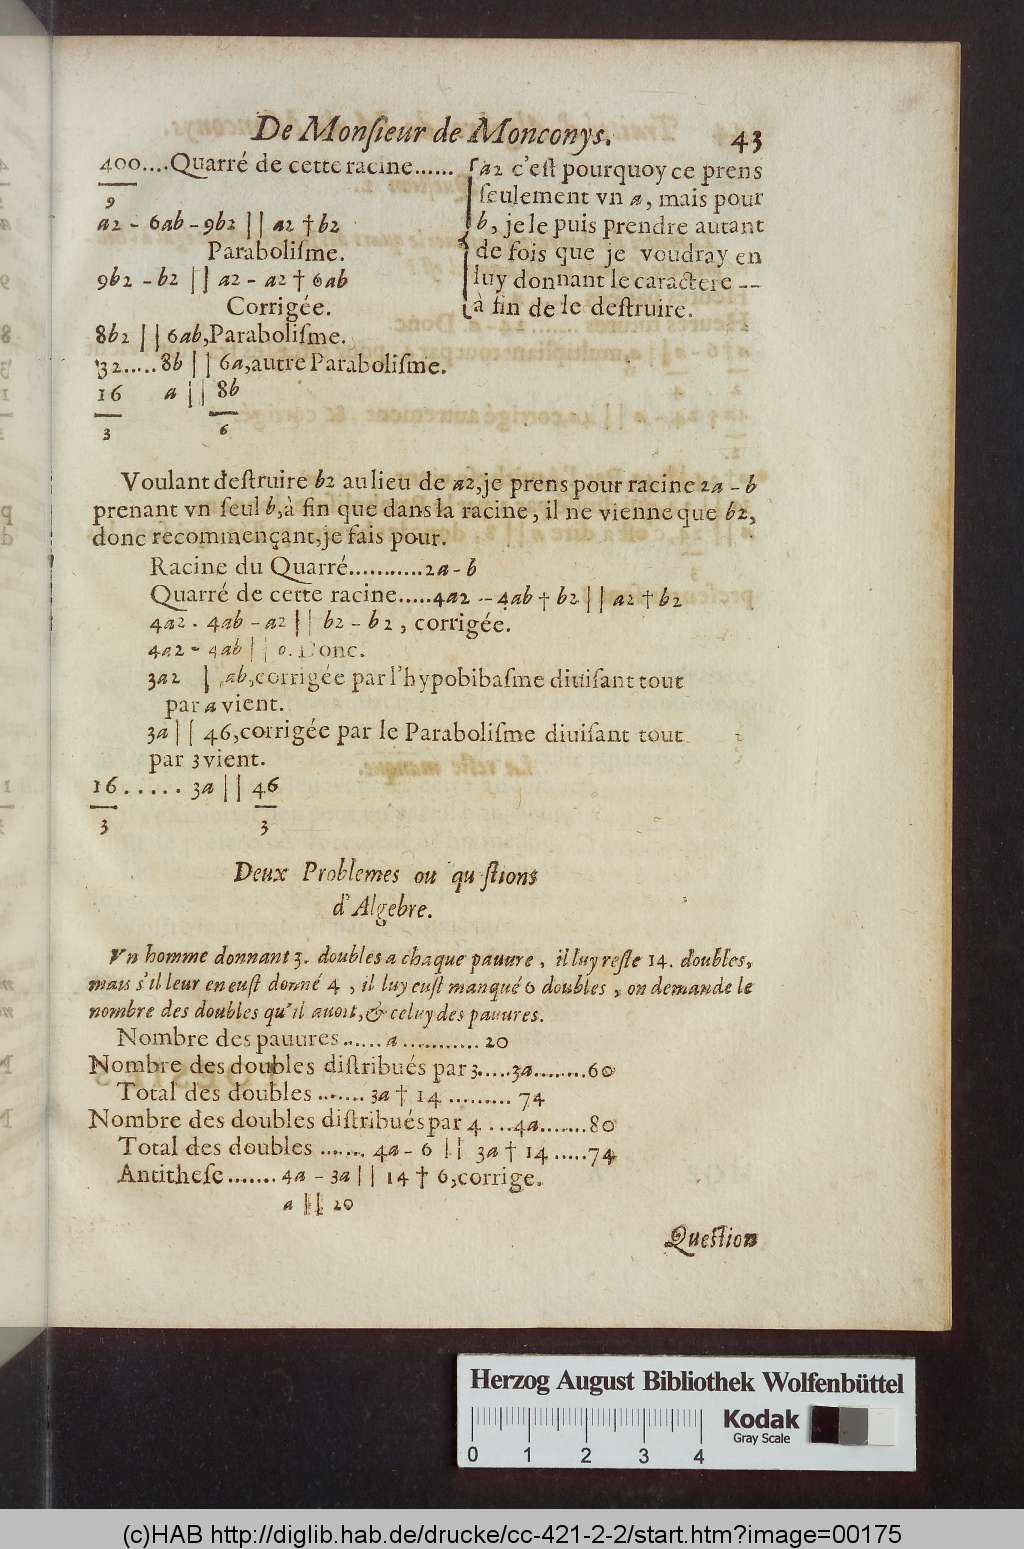 De Monſieur de Monconys. 43
400....Quarré de cette racine......
9
a2 - 6ab - 9b2 || a2 † b2
Paraboliſme.
9b2 - b2 || a2 - a2 † 6ab
Corrigée.
8b2 || 6ab, Paraboliſme.
32.....8b || 6a, autre Paraboliſme.
16 a || 8b
3 6
a2 c'eſt pourquoy ce prens
ſeulement vn a, mais pour
b, je le puis prendre autant
de fois que je voudray en
luy donnant le caractere --
à fin de le deſtruire.
Voulant deſtruire b2 au lieu de a2, je prens pour racine 2a - b
prenant vn ſeul b, à fin que dans la racine, il ne vienne que b2,
donc recommençant, je fais pour.
Racine du Quarré...........2a - b
Quarré de cette racine.....4a2 -- 4ab † b2 || a2 † b2
4a2 - 4ab - a2 || b2 - b2, corrigée.
4a2 - 4ab || 0. Donc.
3a2 | ab, corrigée par l'hypobibaſme diuiſant tout
par a vient.
3a || 46, corrigée par le Paraboliſme diuiſant tout
par 3 vient.
16..... 3a || 46
3 3
Deux Problemes ou qu ſtions
d'Algebre.
Vn homme donnant 3. doubles a chaque pauure, il luy reſte 14. doubles,
mais s'il leur en euſt donné 4, il luy euſt manqué 6 doubles, on demande le
nombre des doubles qu'il auoit, & celuy des pauures.
Nombre des pauures ...... a ........... 20
Nombre des doubles diſtribués par 3.....3a........60
Total des doubles ....... 3a † 14 ......... 74
Nombre des doubles diſtribués par 4 ...4a.......80
Total des doubles ....... 4a - 6 || 3a † 14 .....74
Antitheſe....... 4a - 3a || 14 † 6, corrige.
a || 20
Queſtion
Herzog August Bibliothek Wolfenbüttel
Kodak
Gray Scale
0 1 2 3 4
(c)HAB http://diglib.hab.de/drucke/cc-421-2-2/start.htm?image=00175